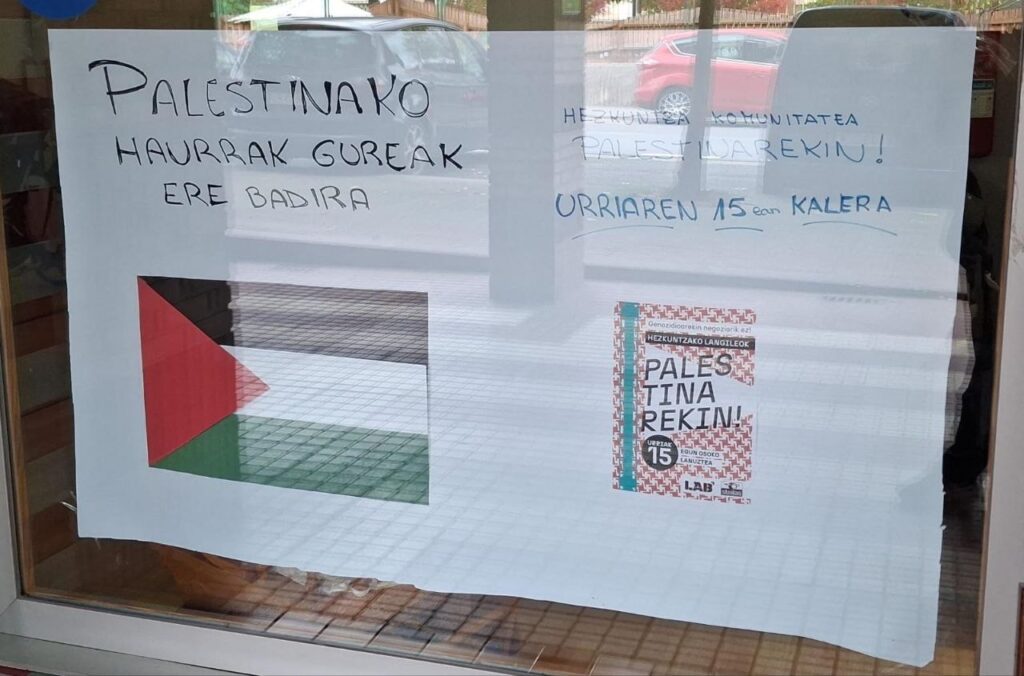 PALESTINAKO
HAURRAK GUREAK
ERE BADIRA
HEZKUNTZA KOMUNITATEA
PALESTINAREKIN!
URRIAREN 15ean KALERA
Genozidioarekin negoziorik ez!
HEZKUNTZAKO LANGILEOK
PALES
TINA
REKIN!
URRIAK
15
EGUN OSOKO
LANUZTEA
LAB